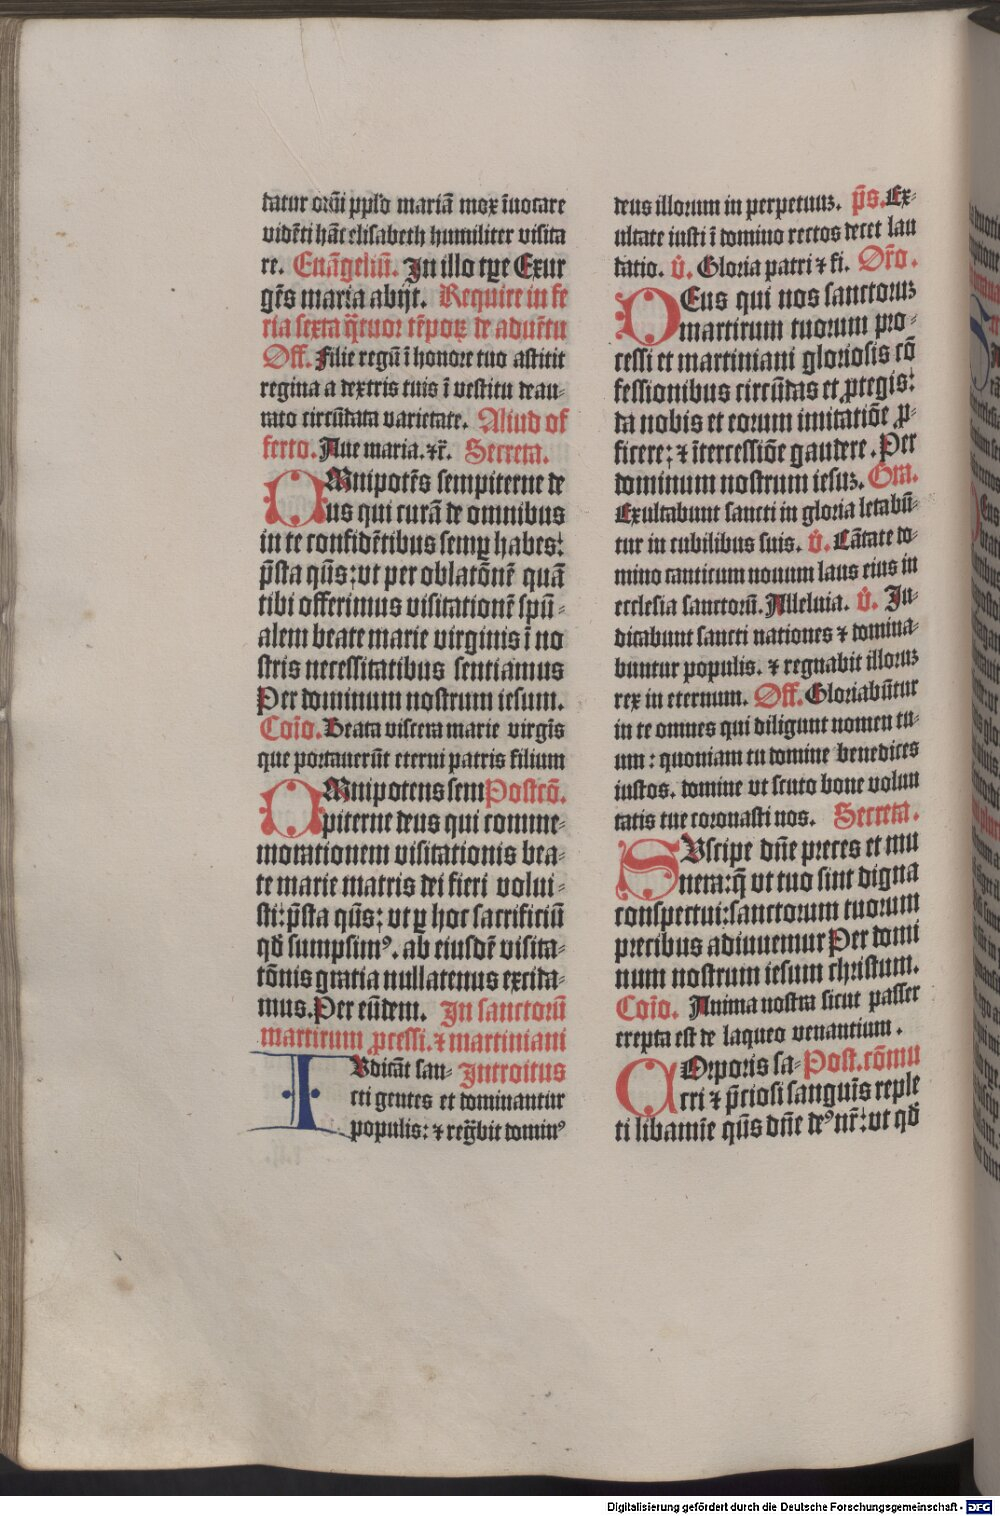 datur om̄i ppl'o mariā mox īuocare
vidēti hāc elisabeth humiliter visita
re. Euāgeliū. In illo tꝑe Exur
gēs maria abijt. Require in fe
ria sexta q̄tuor tēpoꝝ de aduētu
Off. Filie regū ī honore tuo astitit
regina a dextris tuis ī vestitu deau-
rato circūdata varietate. Aliud of
ferto. Aue maria. ⁊c̄. Secreta.
OMnipotēs sempiterne de
us qui curā de omnibus
in te confidētibus semꝑ habes:
p̄sta q̄us: vt per oblatōnē quā
tibi offerimus visitationē spū-
alem beate marie virginis ī no
stris necessitatibus sentiamus
Per dominum nostrum iesum.
Coīo. Beata viscera marie virgīs
que portauerūt eterni patris filium
OMnipotens sem Postcō.
piterne deus qui comme-
morationem visitationis bea-
te marie matris dei fieri volui-
sti: p̄sta q̄us: vt ꝑ hoc sacrificiū
qd̄ sumpsimꝰ. ab eiusdē visita-
tōnis gratia nullatenus excida-
mus. Per eūdem. In sanctorū
martirum ꝓcessi. ⁊ martiniani
IVdicāt san- Introitus
cti gentes et dominantur
populis: ⁊ reg̅bit dominꝰ
deus illorum in perpetuuꝫ. p̄s. Ex-
ultate iusti ī domino rectos decet lau
datio. v̄. Gloria patri ⁊ fi. Or̄o.
DEus qui nos sanctoruꝫ
martirum tuorum pro-
cessi et martiniani gloriosis cō
fessionibus circūdas et ꝓtegis:
da nobis et eorum imitatiōe ꝓ-
ficere: ⁊ ītercessiōe gaudere. Per
dominum nostrum iesuꝫ. Gra.
Exultabunt sancti in gloria letabū-
tur in cubilibus suis. v̄. Cātate do-
mino canticum nouum laus eius in
ecclesia sanctorū. Alleluia. v̄. Iu-
dicabunt sancti nationes ⁊ domina-
buntur populis. ⁊ regnabit illoruꝫ
rex in eternum. Off. Gloriabūtur
in te omnes qui diligunt nomen tu-
um: quoniam tu domine benedices
iustos. domine vt scuto bone volun
tatis tue coronasti nos. Secreta.
SVscipe dn̄e preces et mu
nera: q̄ vt tuo sint digna
conspectui: sanctorum tuorum
precibus adiuuemur Per domi
num nostrum iesum christum.
Coīo. Anima nostra sicut passer
erepta est de laqueo venantium.
COrporis sa- Post.cōmu
cri ⁊ p̄ciosi sanguīs reple
ti libamīe q̄us dn̄e deꝰ nr̄: vt qd̄
Digitalisierung gefördert durch die Deutsche Forschungsgemeinschaft - DFG